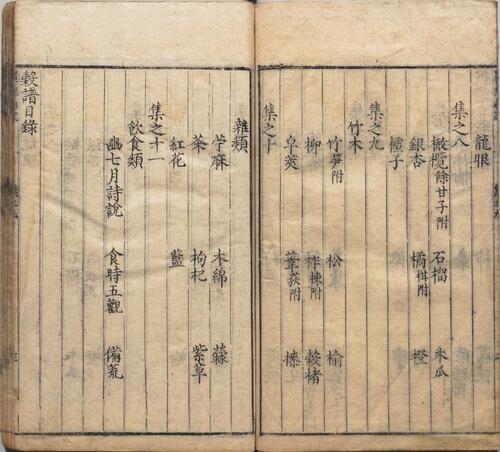 龍眼
集之八
橄欖餘甘子附 石榴 木瓜
銀杏 橘柑附 橙
樝子
集之九
竹木
竹筍附 松 榆
柳 柞楝附 榖楮
皁莢 葦荻附
集之十
雜類
苧麻 木綿
茶 枸杞 紫草
紅花 藍
集之十一
飲食類
豳七月詩說 食時五觀 備荒
榖譜目錄